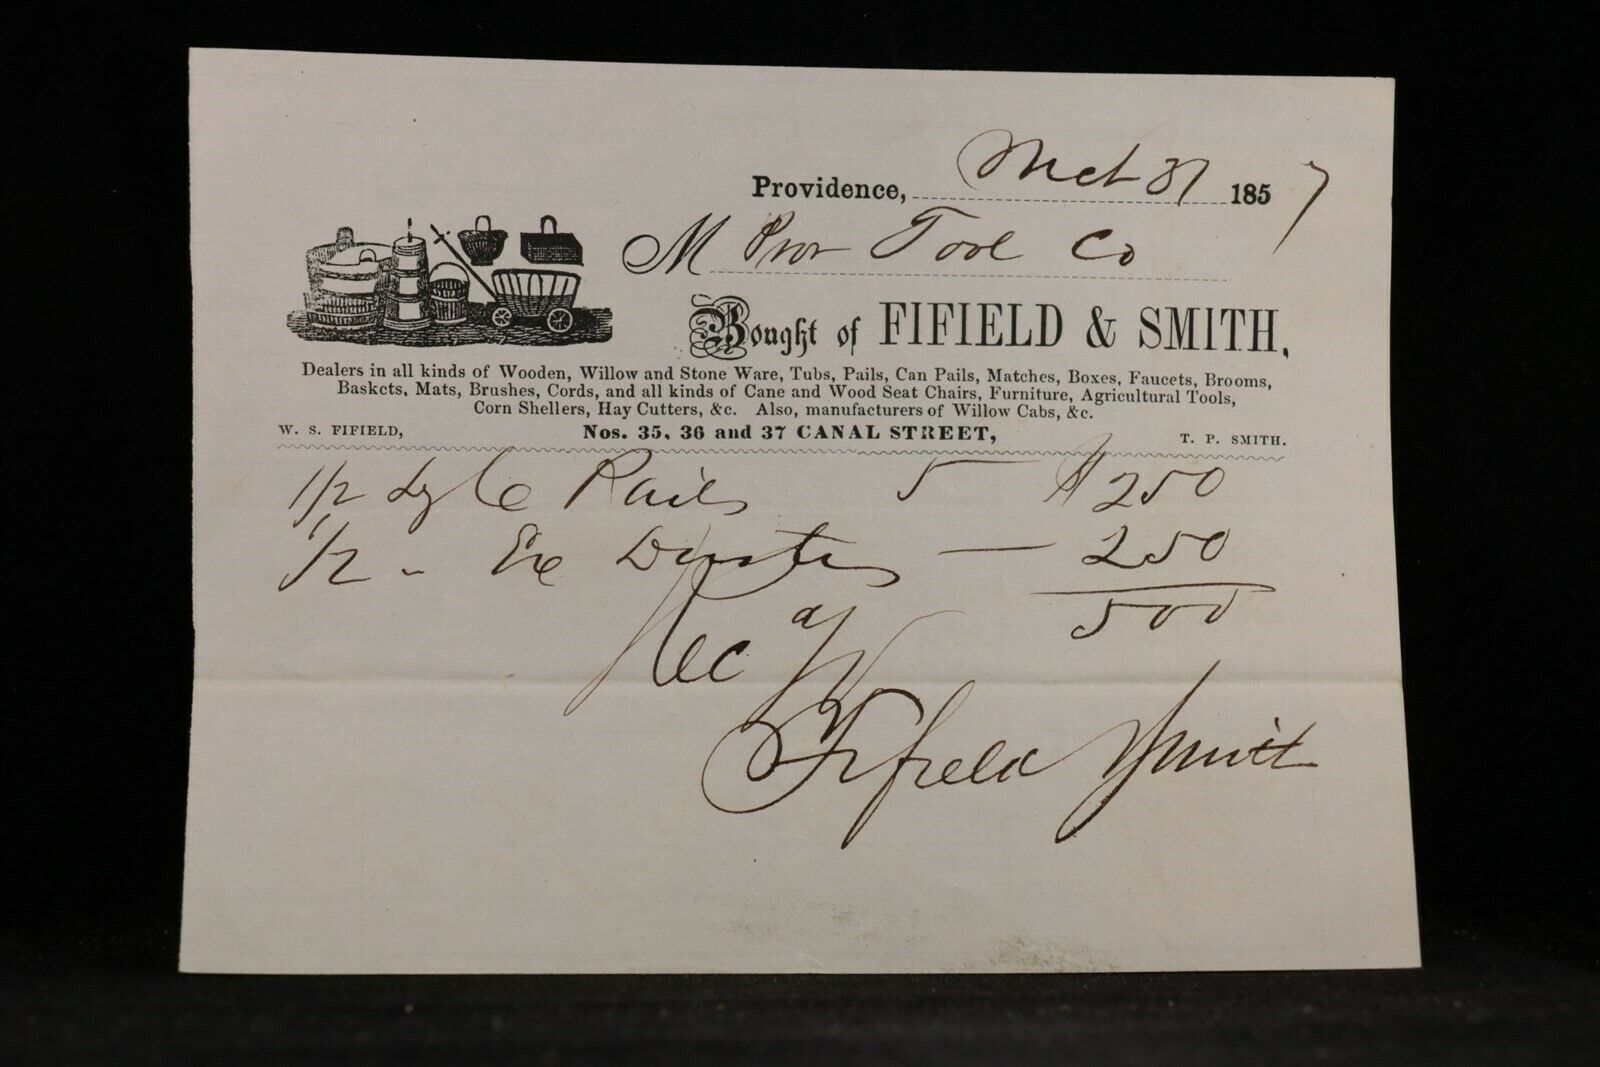 Providence, Mch 31 1857
M Prov Tool Co
Bought of FIFIELD & SMITH,
Dealers in all kinds of Wooden, Willow and Stone Ware, Tubs, Pails, Can Pails, Matches, Boxes, Faucets, Brooms,
Baskets, Mats, Brushes, Cords, and all kinds of Cane and Wood Seat Chairs, Furniture, Agricultural Tools,
Corn Shellers, Hay Cutters, &c. Also, manufacturers of Willow Cabs, &c.
W. S. FIFIELD, Nos. 35, 36 and 37 CANAL STREET, T. P. SMITH.
1/2 Dz Pails 5 — $ 2 50
1/2 " Ex Dusters — 2 50
5 00
Rec Py
Fifield Smith